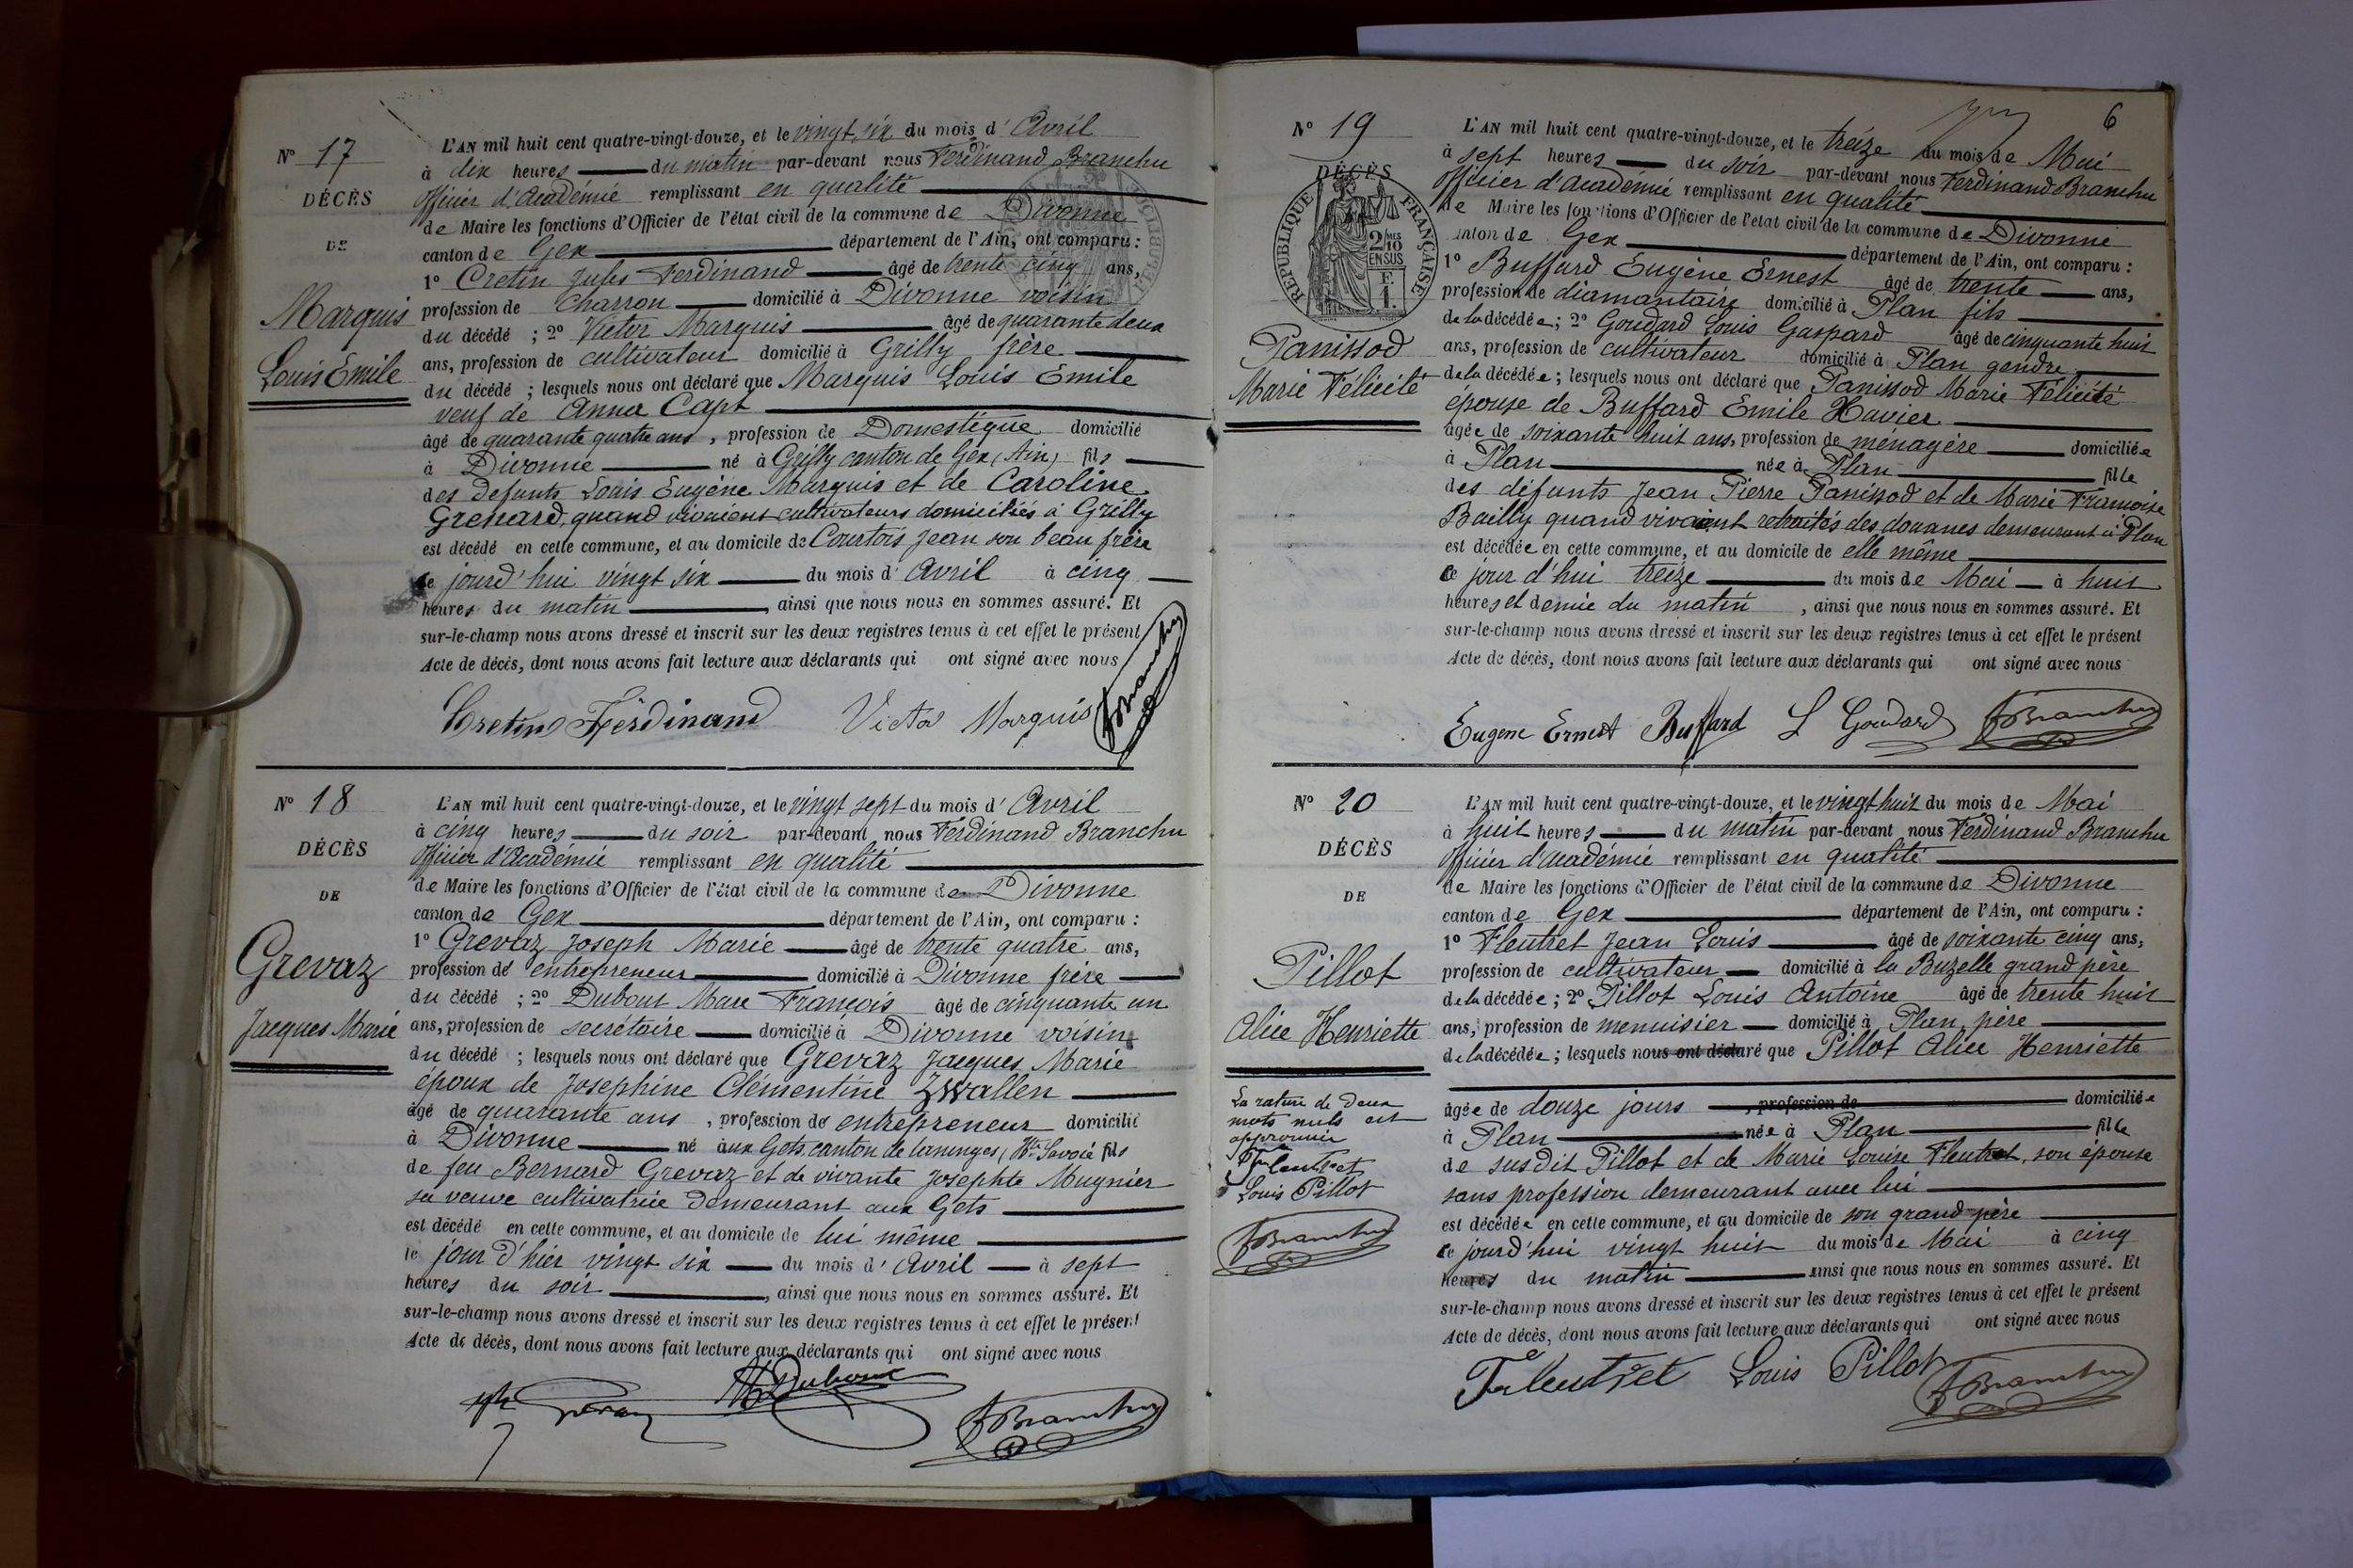 Nº 17
DÉCÈS
DE
Marquis
Louis Emile
L'AN mil huit cent quatre-vingt-douze, et le vingt six du mois d' Avril
à dix heures du matin par-devant nous Ferdinand Branchu
officier d'Académie remplissant en qualité
de Maire les fonctions d'Officier de l'état civil de la commune de Divonne
canton de Gex département de l'Ain, ont comparu :
1º Cretin Jules Ferdinand âgé de trente cinq ans,
profession de Charron domicilié à Divonne voisin
du décédé ; 2º Victor Marquis âgé de quarante deux
ans, profession de cultivateur domicilié à Grilly frère
du décédé ; lesquels nous ont déclaré que Marquis Louis Emile
veuf de Anna Capt
âgé de quarante quatre ans , profession de Domestique domicilié
à Divonne né à Grilly canton de Gex (Ain) fils
des defunts Louis Eugène Marquis et de Caroline
Grenard, quand vivaient cultivateurs domiciliés à Grilly
est décédé en cette commune, et au domicile de Courtois Jean son beau frère
ce jourd'hui vingt six du mois d' Avril à cinq
heures du matin , ainsi que nous nous en sommes assuré. Et
sur-le-champ nous avons dressé et inscrit sur les deux registres tenus à cet effet le présent
Acte de décès, dont nous avons fait lecture aux déclarants qui ont signé avec nous
Cretin Ferdinand Victor Marquis Branchu
Nº 18
DÉCÈS
DE
Grevaz
Jacques Marie
L'AN mil huit cent quatre-vingt-douze, et le vingt sept du mois d' Avril
à cinq heures du soir par-devant nous Ferdinand Branchu
officier d'Académie remplissant en qualité
de Maire les fonctions d'Officier de l'état civil de la commune de Divonne
canton de Gex département de l'Ain, ont comparu :
1º Grevaz Joseph Marie âgé de trente quatre ans,
profession de entrepreneur domicilié à Divonne frère
du décédé ; 2º Dubout Marc François âgé de cinquante un
ans, profession de secrétaire domicilié à Divonne voisin
du décédé ; lesquels nous ont déclaré que Grevaz Jacques Marie
époux de Josephine Clémentine Zwallen
âgé de quarante ans , profession de entrepreneur domicilié
à Divonne né aux Gets, canton de Taninges, Hte Savoie fils
de feu Bernard Grevaz et de vivante Josephte Mugnier
sa veuve cultivatrice demeurant aux Gets
est décédé en cette commune, et au domicile de lui même
le jour d'hier vingt six du mois d' Avril à sept
heures du soir , ainsi que nous nous en sommes assuré. Et
sur-le-champ nous avons dressé et inscrit sur les deux registres tenus à cet effet le présent
Acte de décès, dont nous avons fait lecture aux déclarants qui ont signé avec nous
Dubout
FBranchu
6
Nº 19
DÉCÈS
RÉPUBLIQUE FRANÇAISE
2/10 MES
EN SUS
F.
1.
Panissod
Marie Félicité
L'AN mil huit cent quatre-vingt-douze, et le treize du mois de Mai
à sept heures du soir par-devant nous Ferdinand Branchu
officier d'Académie remplissant en qualité
de Maire les fonctions d'Officier de l'état civil de la commune de Divonne
canton de Gex département de l'Ain, ont comparu :
1º Buffard Eugène Ernest âgé de trente ans,
profession de diamantaire domicilié à Plan fils
de la décédée ; 2º Goudard Louis Gaspard âgé de cinquante huit
ans, profession de cultivateur domicilié à Plan gendre
de la décédée ; lesquels nous ont déclaré que Panissod Marie Félicité
épouse de Buffard Emile Xavier
âgée de soixante huit ans, profession de ménagère domiciliée
à Plan née à Plan fille
des défunts Jean Pierre Panissod et de Marie Françoise
Bailly quand vivaient retraités des douanes demeurant à Plan
est décédée en cette commune, et au domicile de elle même
ce jour d'hui treize du mois de Mai à huit
heures et demie du matin , ainsi que nous nous en sommes assuré. Et
sur-le-champ nous avons dressé et inscrit sur les deux registres tenus à cet effet le présent
Acte de décès, dont nous avons fait lecture aux déclarants qui ont signé avec nous
Eugene Ernest Buffard L Goudard FBranchu
Nº 20
DÉCÈS
DE
Pillot
Alice Henriette
La rature de deux
mots nuls est
approuvée
Fleutret
Louis Pillot
FBranchu
L'AN mil huit cent quatre-vingt-douze, et le vingt huit du mois de Mai
à huit heures du matin par-devant nous Ferdinand Branchu
officier d'Académie remplissant en qualité
de Maire les fonctions d'Officier de l'état civil de la commune de Divonne
canton de Gex département de l'Ain, ont comparu :
1º Fleutret Jean Louis âgé de soixante cinq ans,
profession de cultivateur domicilié à la Buzelle grand père
de la décédée ; 2º Pillot Louis Antoine âgé de trente huit
ans, profession de menuisier domicilié à Plan, père
de la décédée ; lesquels nous ont déclaré que Pillot Alice Henriette
âgée de douze jours , profession de domiciliée
à Plan née à Plan fille
de susdit Pillot et de Marie Louise Fleutret, son épouse
sans profession demeurant avec lui
est décédée en cette commune, et au domicile de son grand-père
ce jourd'hui vingt huit du mois de Mai à cinq
heures du matin ainsi que nous nous en sommes assuré. Et
sur-le-champ nous avons dressé et inscrit sur les deux registres tenus à cet effet le présent
Acte de décès, dont nous avons fait lecture aux déclarants qui ont signé avec nous
Fleutret Louis Pillot FBranchu